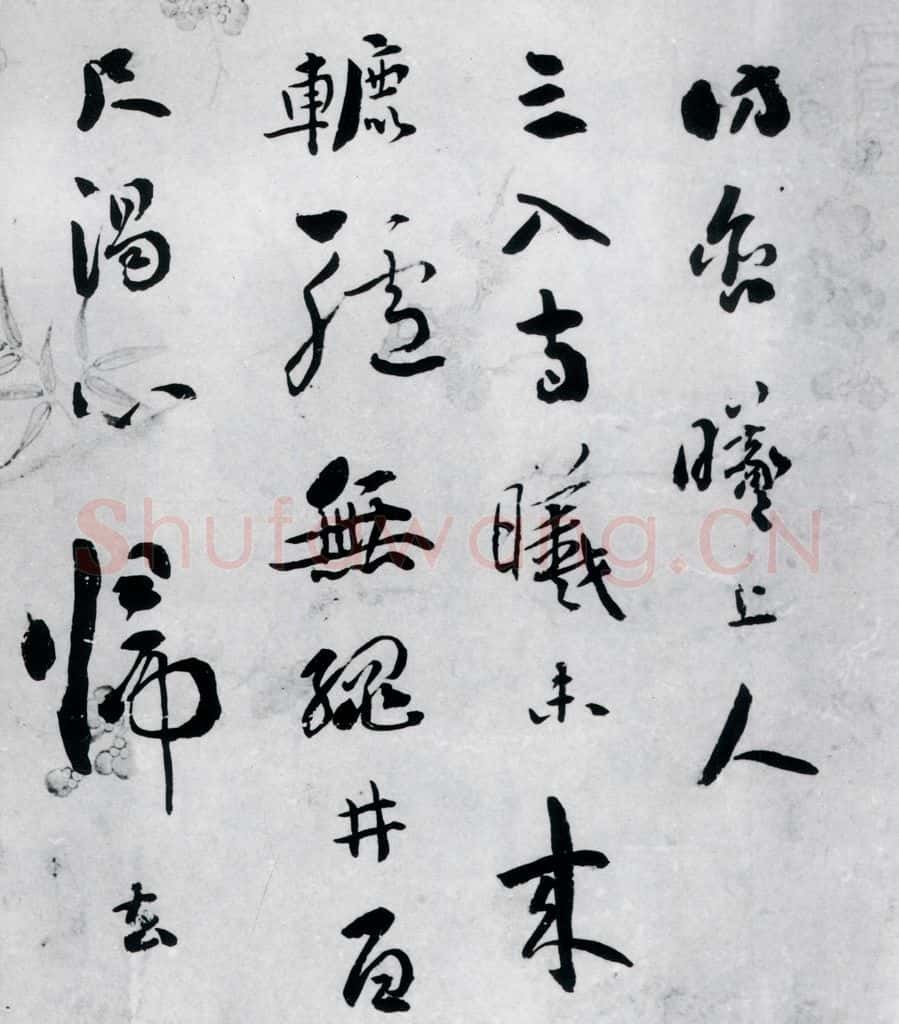 訪含曦上人
三入寺曦未來
轆轤無繩井百
尺渴心歸去
Shufawang.CN